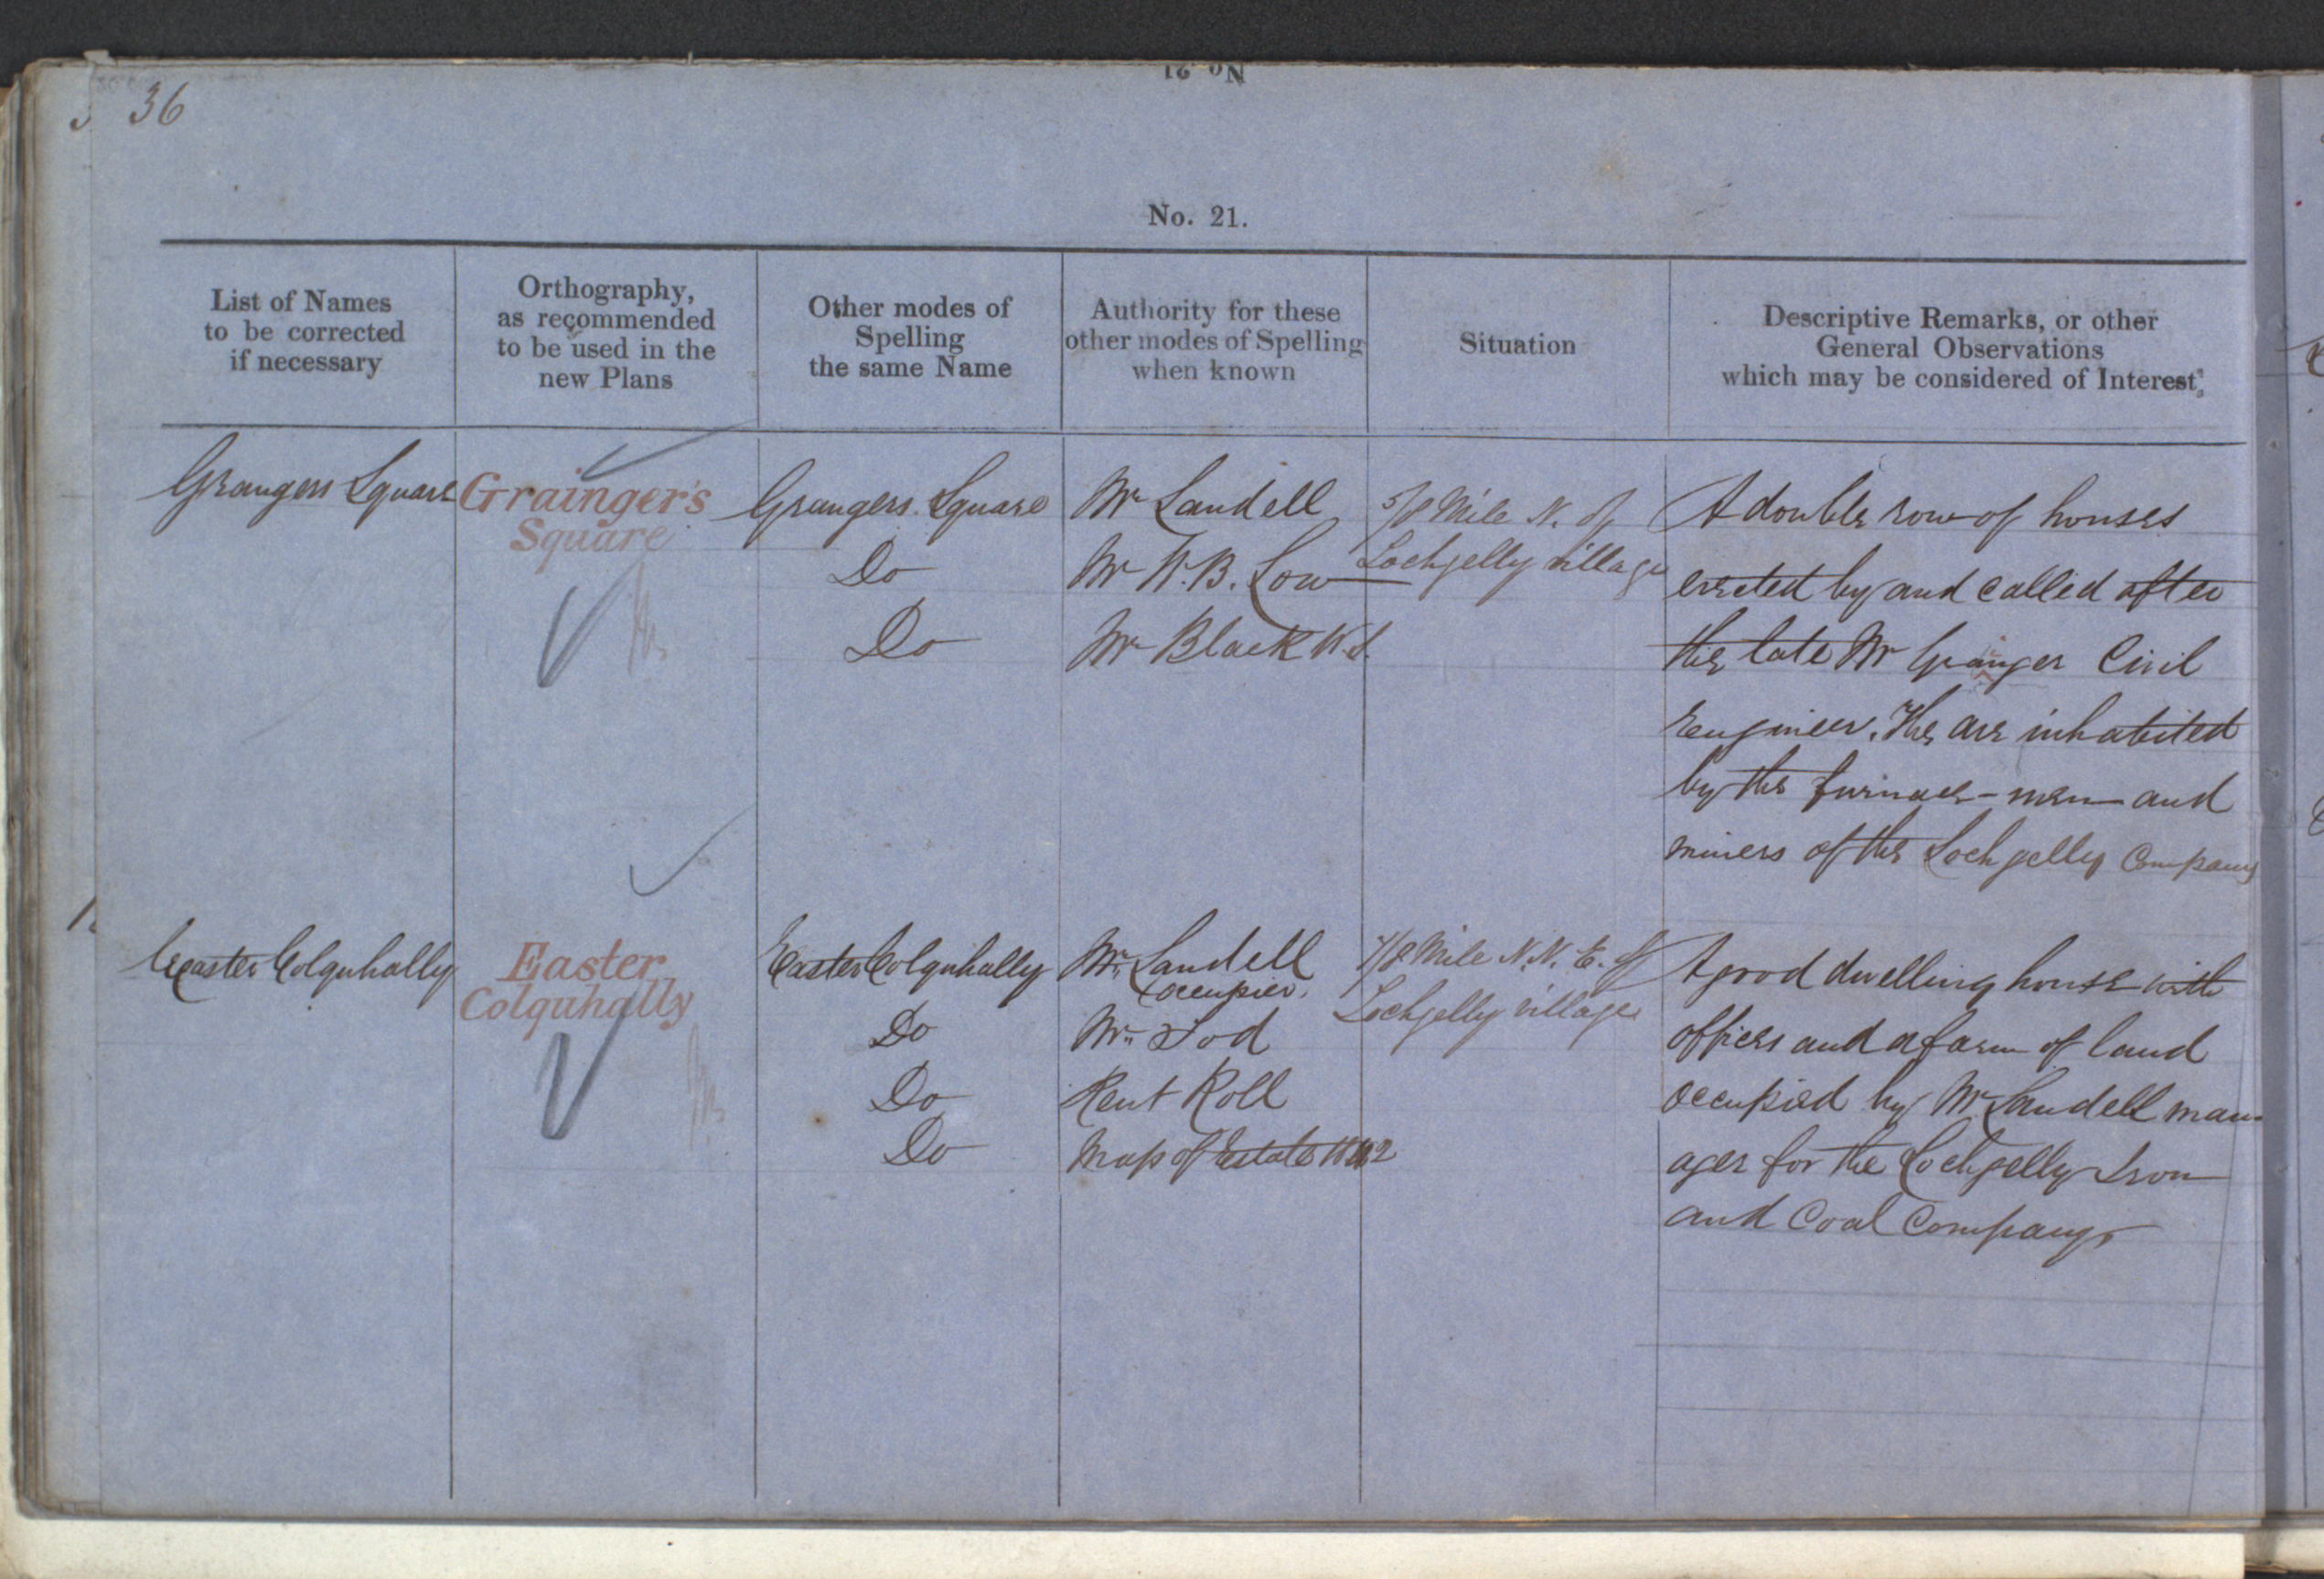 No. 21
36
No. 21.
List of Names
to be corrected
if necessary
Orthography,
as recommended
to be used in the
new Plans
Other modes of
Spelling
the same Name
Authority for these
other modes of Spelling
when known
Situation
Descriptive Remarks, or other
General Observations
which may be considered of Interest.
Grangers Square
Grainger's
Square
Grangers Square
Do
Do
Mr Landell
Mr W.B. Low
Mr Black W.S.
5/8 Mile N. of
Lochgelly village
A double row of houses
erected by and called after
the late Mr Grainger Civil
Engineer. The are inhabited
by the furnace-men and
miners of the Lochgelly Company
Easter Colquhally
Easter
Colquhally
Easter Colquhally
Do
Do
Do
Mr. Landell
occupier.
Mr. Tod
Rent Roll
Map of Estate
7/8 Mile N.N.E. of
Lochgelly village
A good dwelling house with
offices and a farm of land
occupied by Mr. Landell man-
ager for the Lochgelly Iron
and Coal Company